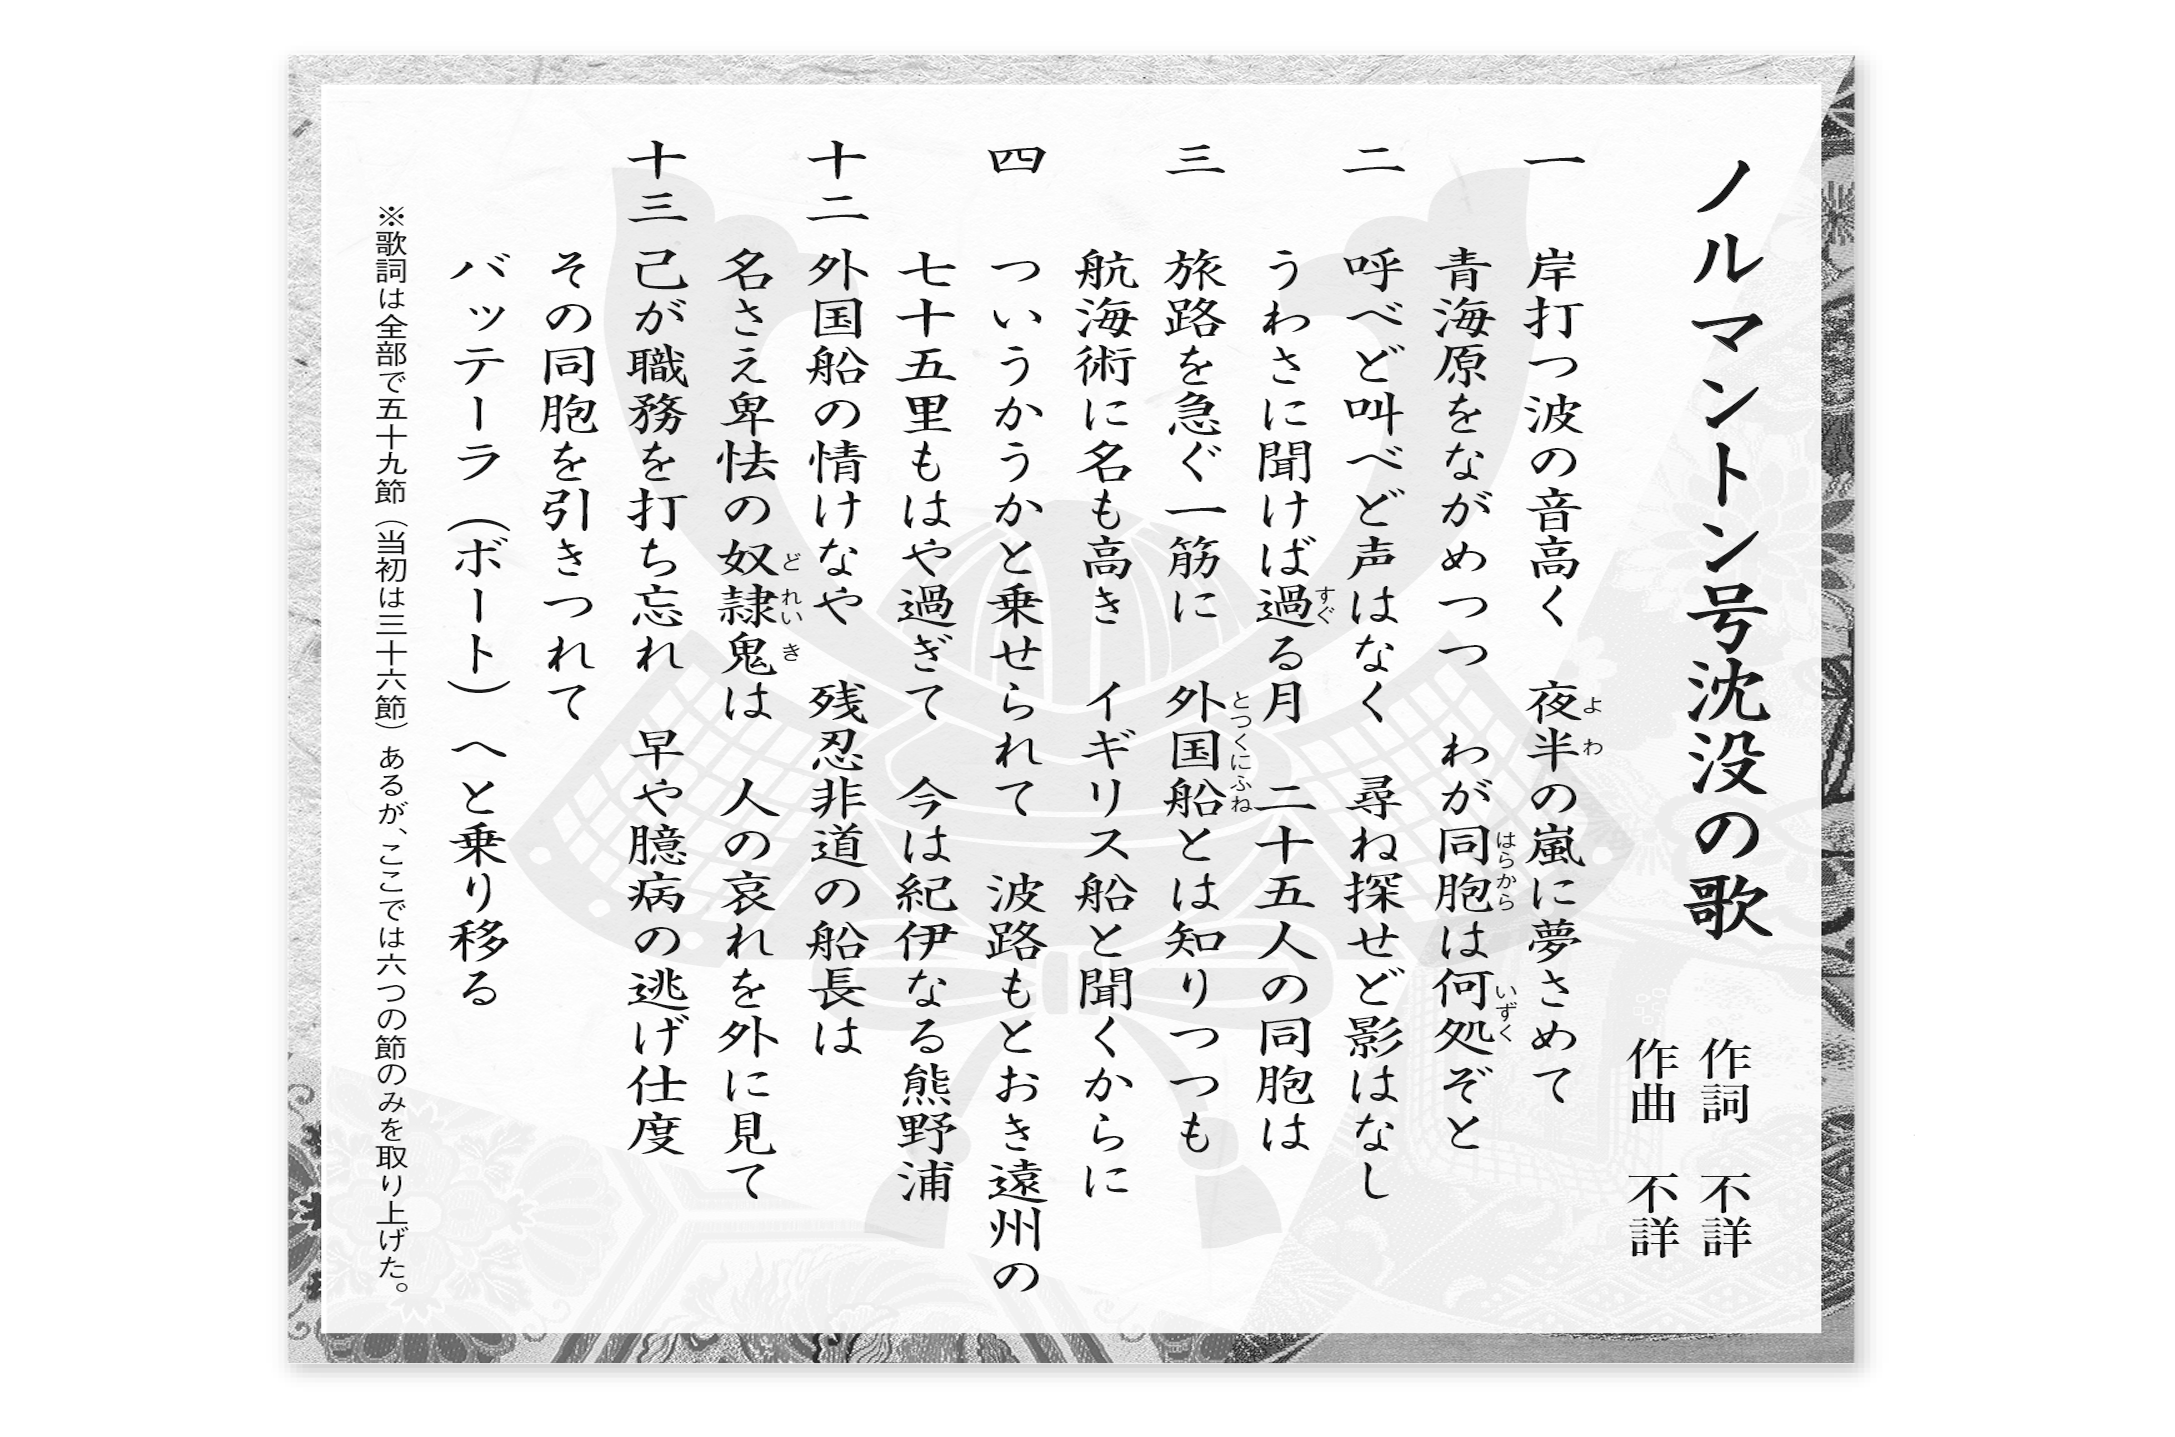 ノルマントン号沈没の歌
作詞　不詳
作曲　不詳
一　岸打つ波の音高く　夜半の嵐に夢さめて
よわ
青海原をながめつつ　わが同胞は何処ぞと
はらから　いずく
二　呼べど叫べど声はなく　尋ね探せど影はなし
うわさに聞けば過る月　二十五人の同胞は
すぐ
三　旅路を急ぐ一筋に　外国船とは知りつつも
とつくにふね
航海術に名も高き　イギリス船と聞くからに
四　ついうかうかと乗せられて　波路もとおき遠州の
七十五里もはや過ぎて　今は紀伊なる熊野浦
十二　外国船の情けなや　残忍非道の船長は
名さえ卑怯の奴隷鬼は　人の哀れを外に見て
どれいき
十三　己が職務を打ち忘れ　早や臆病の逃げ仕度
その同胞を引きつれて
バッテーラ（ボート）へと乗り移る
※歌詞は全部で五十九節（当初は三十六節）あるが、ここでは六つの節のみを取り上げた。